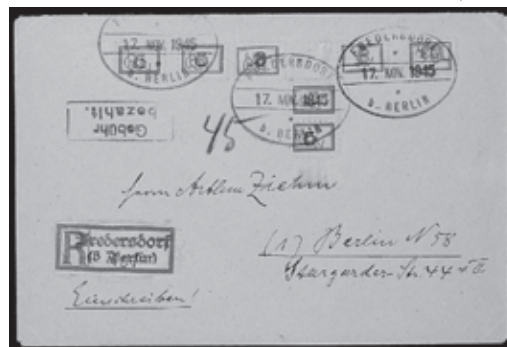 17. NOV. 1945
FREDERSDORF
17. NOV. 1945
b. BERLIN
FREDERSDORF
17. NOV. 1945
b. BERLIN
Gebühr
bezahlt.
45
Herrn Arthur Ziehm
R Fredersdorf
(b Berlin)
(1) Berlin N 58
Stargarder-Str. 44
Einschreiben!